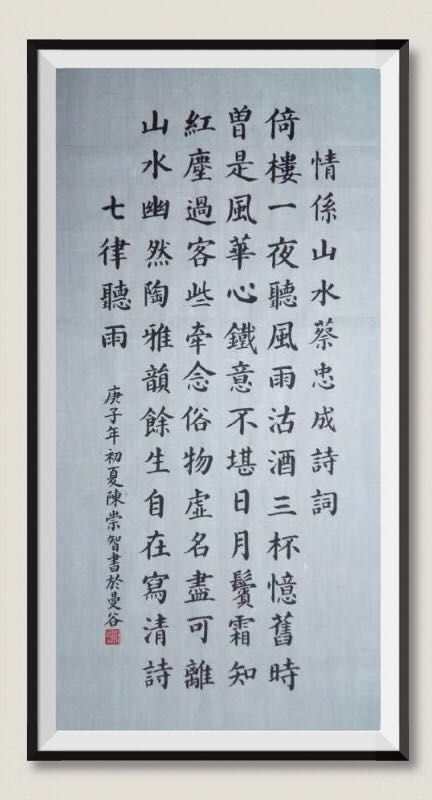 情係山水蔡忠成詩詞
倚樓一夜聽風雨沽酒三杯憶舊時
曾是風華心鐵意不堪日月鬢霜知
紅塵過客些牽念俗物虛名盡可離
山水幽然陶雅韻餘生自在寫清詩
七律聽雨
庚子年初夏陳崇智書於曼谷